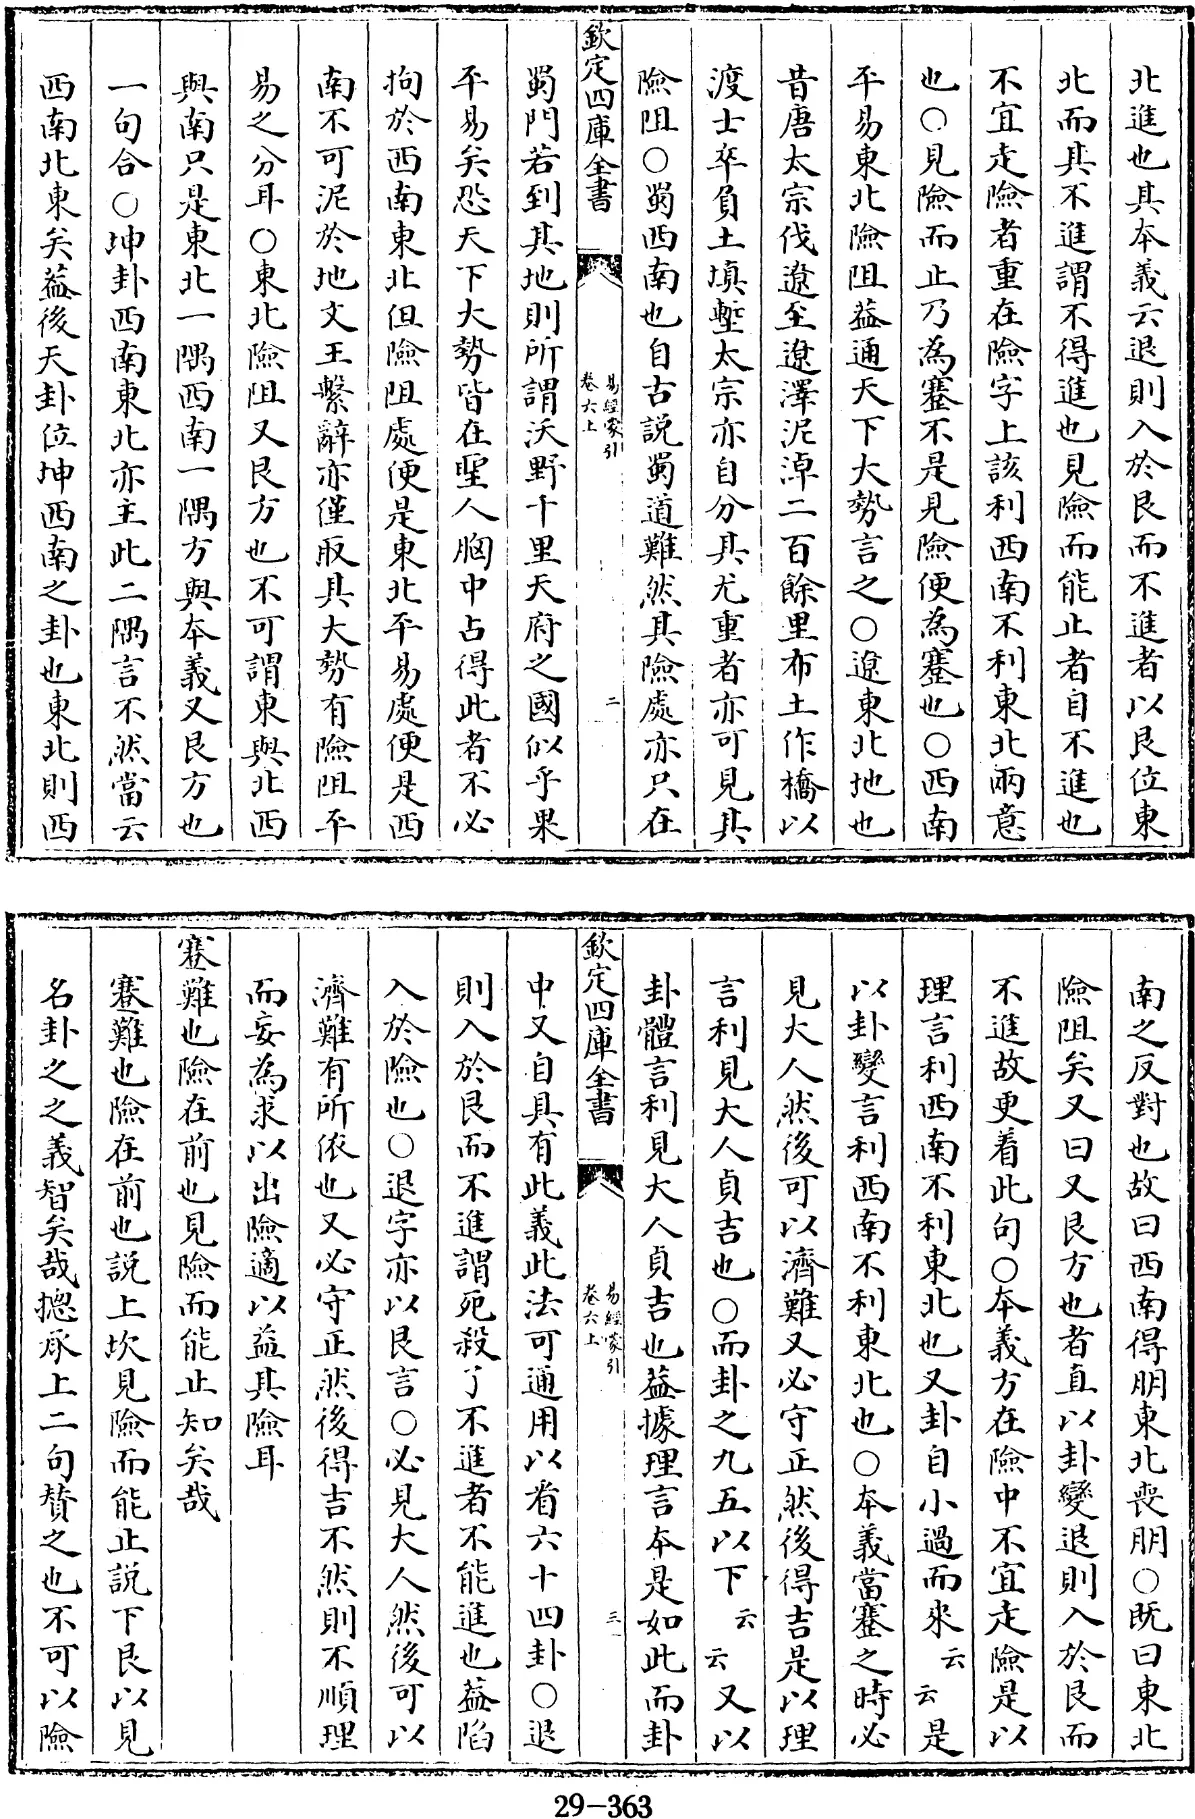 北進也其本義云退則入於艮而不進者以艮位東
北而其不進謂不得進也見險而能止者自不進也
不宜走險者重在險字上該利西南不利東北兩意
也○見險而止乃為蹇不是見險便為蹇也○西南
平易東北險阻蓋通天下大勢言之○遼東北地也
昔唐太宗伐遼至遼澤泥淖二百餘里布土作橋以
渡士卒負土填壍太宗亦自分其尤重者亦可見其
險阻○蜀西南也自古説蜀道難然其險處亦只在
欽定四庫全書
易經蒙引
卷六上
二
蜀門若到其地則所謂沃野千里天府之國似乎果
平易矣恐天下大勢皆在聖人胸中占得此者不必
拘於西南東北但險阻處便是東北平易處便是西
南不可泥於地文王繫辭亦僅取其大勢有險阻平
易之分耳○東北險阻又艮方也不可謂東與北西
與南只是東北一隅西南一隅方與本義又艮方也
一句合○坤卦西南東北亦主此二隅言不然當云
西南北東矣蓋後天卦位坤西南之卦也東北則西
南之反對也故曰西南得朋東北喪朋○既曰東北
險阻矣又曰又艮方也者直以卦變退則入於艮而
不進故更着此句○本義方在險中不宜走險是以
理言利西南不利東北也又卦自小過而來云云是
以卦變言利西南不利東北也○本義當蹇之時必
見大人然後可以濟難又必守正然後得吉是以理
言利見大人貞吉也○而卦之九五以下云云又以
卦體言利見大人貞吉也蓋據理言本是如此而卦
欽定四庫全書
易經蒙引
卷六上
三
中又自具有此義此法可通用以看六十四卦○退
則入於艮而不進謂死殺了不進者不能進也蓋陷
入於險也○退字亦以艮言○必見大人然後可以
濟難有所依也又必守正然後得吉不然則不順理
而妄為求以出險適以益其險耳
蹇難也險在前也見險而能止知矣哉
蹇難也險在前也説上坎見險而能止説下艮以見
名卦之之義智矣哉摠承上二句贊之也不可以險
29-363